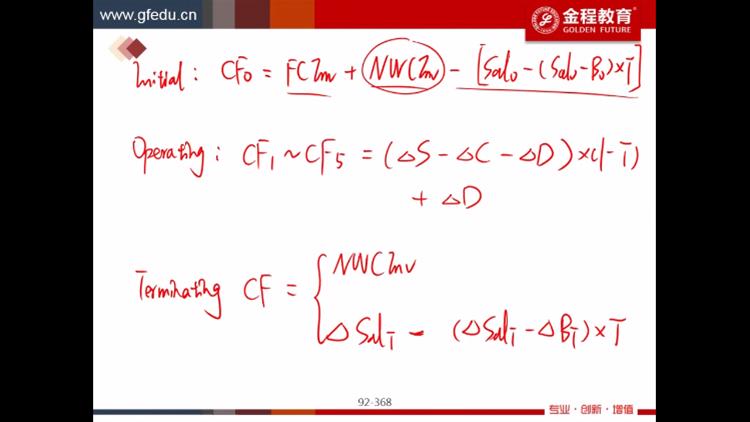 www.gfedu.cn
金程教育
GOLDEN FUTURE
Initial: CF₀ = FCInv + NWCInv - [Sal₀ - (Sal₀ - B₀) × T]
Operating: CF₁ ~ CF₅ = (△S - △C - △D) × (1 - T)
+ △D
Terminating CF = { NWCInv
△Sal_T - (△Sal_T - △B_T) × T
92-368
专业·创新·增值